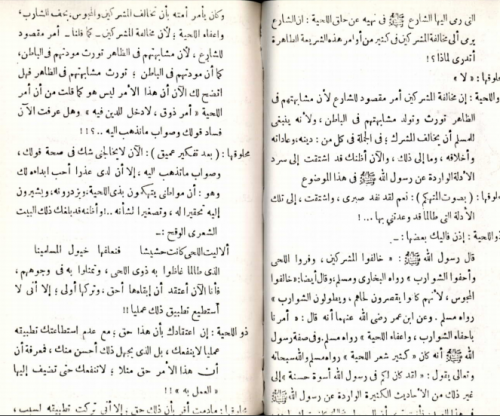 التي رمى اليها الشارع ﷺ في نهيه عن حلق اللحية : ان الشارع
يرمى الى مخالفة المشركين في كثير من أوامر هذه الشريعة الطاهرة
أتدرى لماذا ؟!
محلوقها : « لا »
ذو اللحية : إن مخالفة المشركين أمر مقصود للشارع لأن مشابهتهم في
الظاهر تورث وتولد مشابهتهم في الباطن ، ولأنه ينبغي
للمسلم أن يخالف المشرك ؛ في الجملة في كل من : دينه ، وعاداته
وأخلاقه ، وما إلى ذلك ، والآن أظنك قد اشتقت إلى سرد
الأدلة الواردة عن رسول الله ﷺ في هذا الموضوع
محلوقها : ( بصوت المتهكم ) : نعم لقد نفد صبرى ، واشتقت ، إلى تلك
الأدلة التى طالما قد وعدتنى بها ...!
ذو اللحية : إذن فاليك بعضها : ــ
قال رسول الله ﷺ : « خالفوا المشركين ، وفروا اللحى
وأحفوا الشوارب » رواه البخارى ومسلم ، وقال أيضا : « خالفوا
المجوس ، لأنهم كانوا يقصرون لحاهم ، ويطولون الشوارب »
رواه مسلم . وعن ابن عمر رضى الله عنهما أنه قال : « أمرنا
باحفاء الشوارب ، واعفاء اللحية » رواه مسلم ، وفى صفة رسول
الله ﷺ أنه كان « كثير شعر اللحية » رواه مسلم ، والله سبحانه
وتعالى يقول : « لقد كان لكم فى رسول الله أسوة حسنة » إلى
غير ذلك من الأحاديث الكثيرة الواردة عن رسول الله ﷺ
وكان يأمر أمته بأن تخالف المشركين والمجوس بحف الشوارب ،
واعفاء اللحية ؛ لأن مخالفة المشركين ــ كما قلنا ــ أمر مقصود
للشارع ، لأن مشابهتهم في الظاهر تورث مودتهم في الباطن ،
كما أن مودتهم في الباطن ؛ تورث مشابهتهم في الظاهر فهل
اتضح لك الآن أن هذا الأمر ليس هو كما قلت من أن أمر
اللحية « أمر ذوق ، لا دخل للدين فيه » وهل عرفت الآن
فساد قولك وصواب ما نذهب اليه ..؟!!
محلوقها : ( بعد تفكير عميق ) : الآن لا يخالجنى شك فى صحة قولك ،
وصواب ما تذهب اليه ؛ إلا أن لدى عذرا أحب ابداءه لك
وهو : أن مواطنى يتهكمون بذى اللحية ، ويزدرونه ، ويشيرون
إليه تحقيرا له ، وتصغيرا لشأنه .. وأظنه قد بلغك ذلك البيت
الشعرى الوقح : ــ
ألا ليت اللحى كانت حشيشا فنعلفها خيول المسلمينا
الذى طالما غاظوا به ذوى اللحى ، وتمثلوا به فى وجوههم ،
فأنا الآن أعتقد أن إبقاءها أحق ، وتركها أولى ؛ إلا أنى لا
أستطيع تطبيق ذلك عمليا !!
ذو اللحية : إن اعتقادك بأن هذا حق ؛ مع عدم استطاعتك تطبيقه
عمليا لا ينفعك ، بل الذى يجهل ذلك أحسن منك ، فمعرفة أن
أن هذا الأمر حق مثلا ؛ لا تنفعك حتى تضيف إليها
« العمل به » !!
محلوقها : ما دمت أقر بأن ذلك حق ، إلا أنى تركت تطبيقه لسبب ،